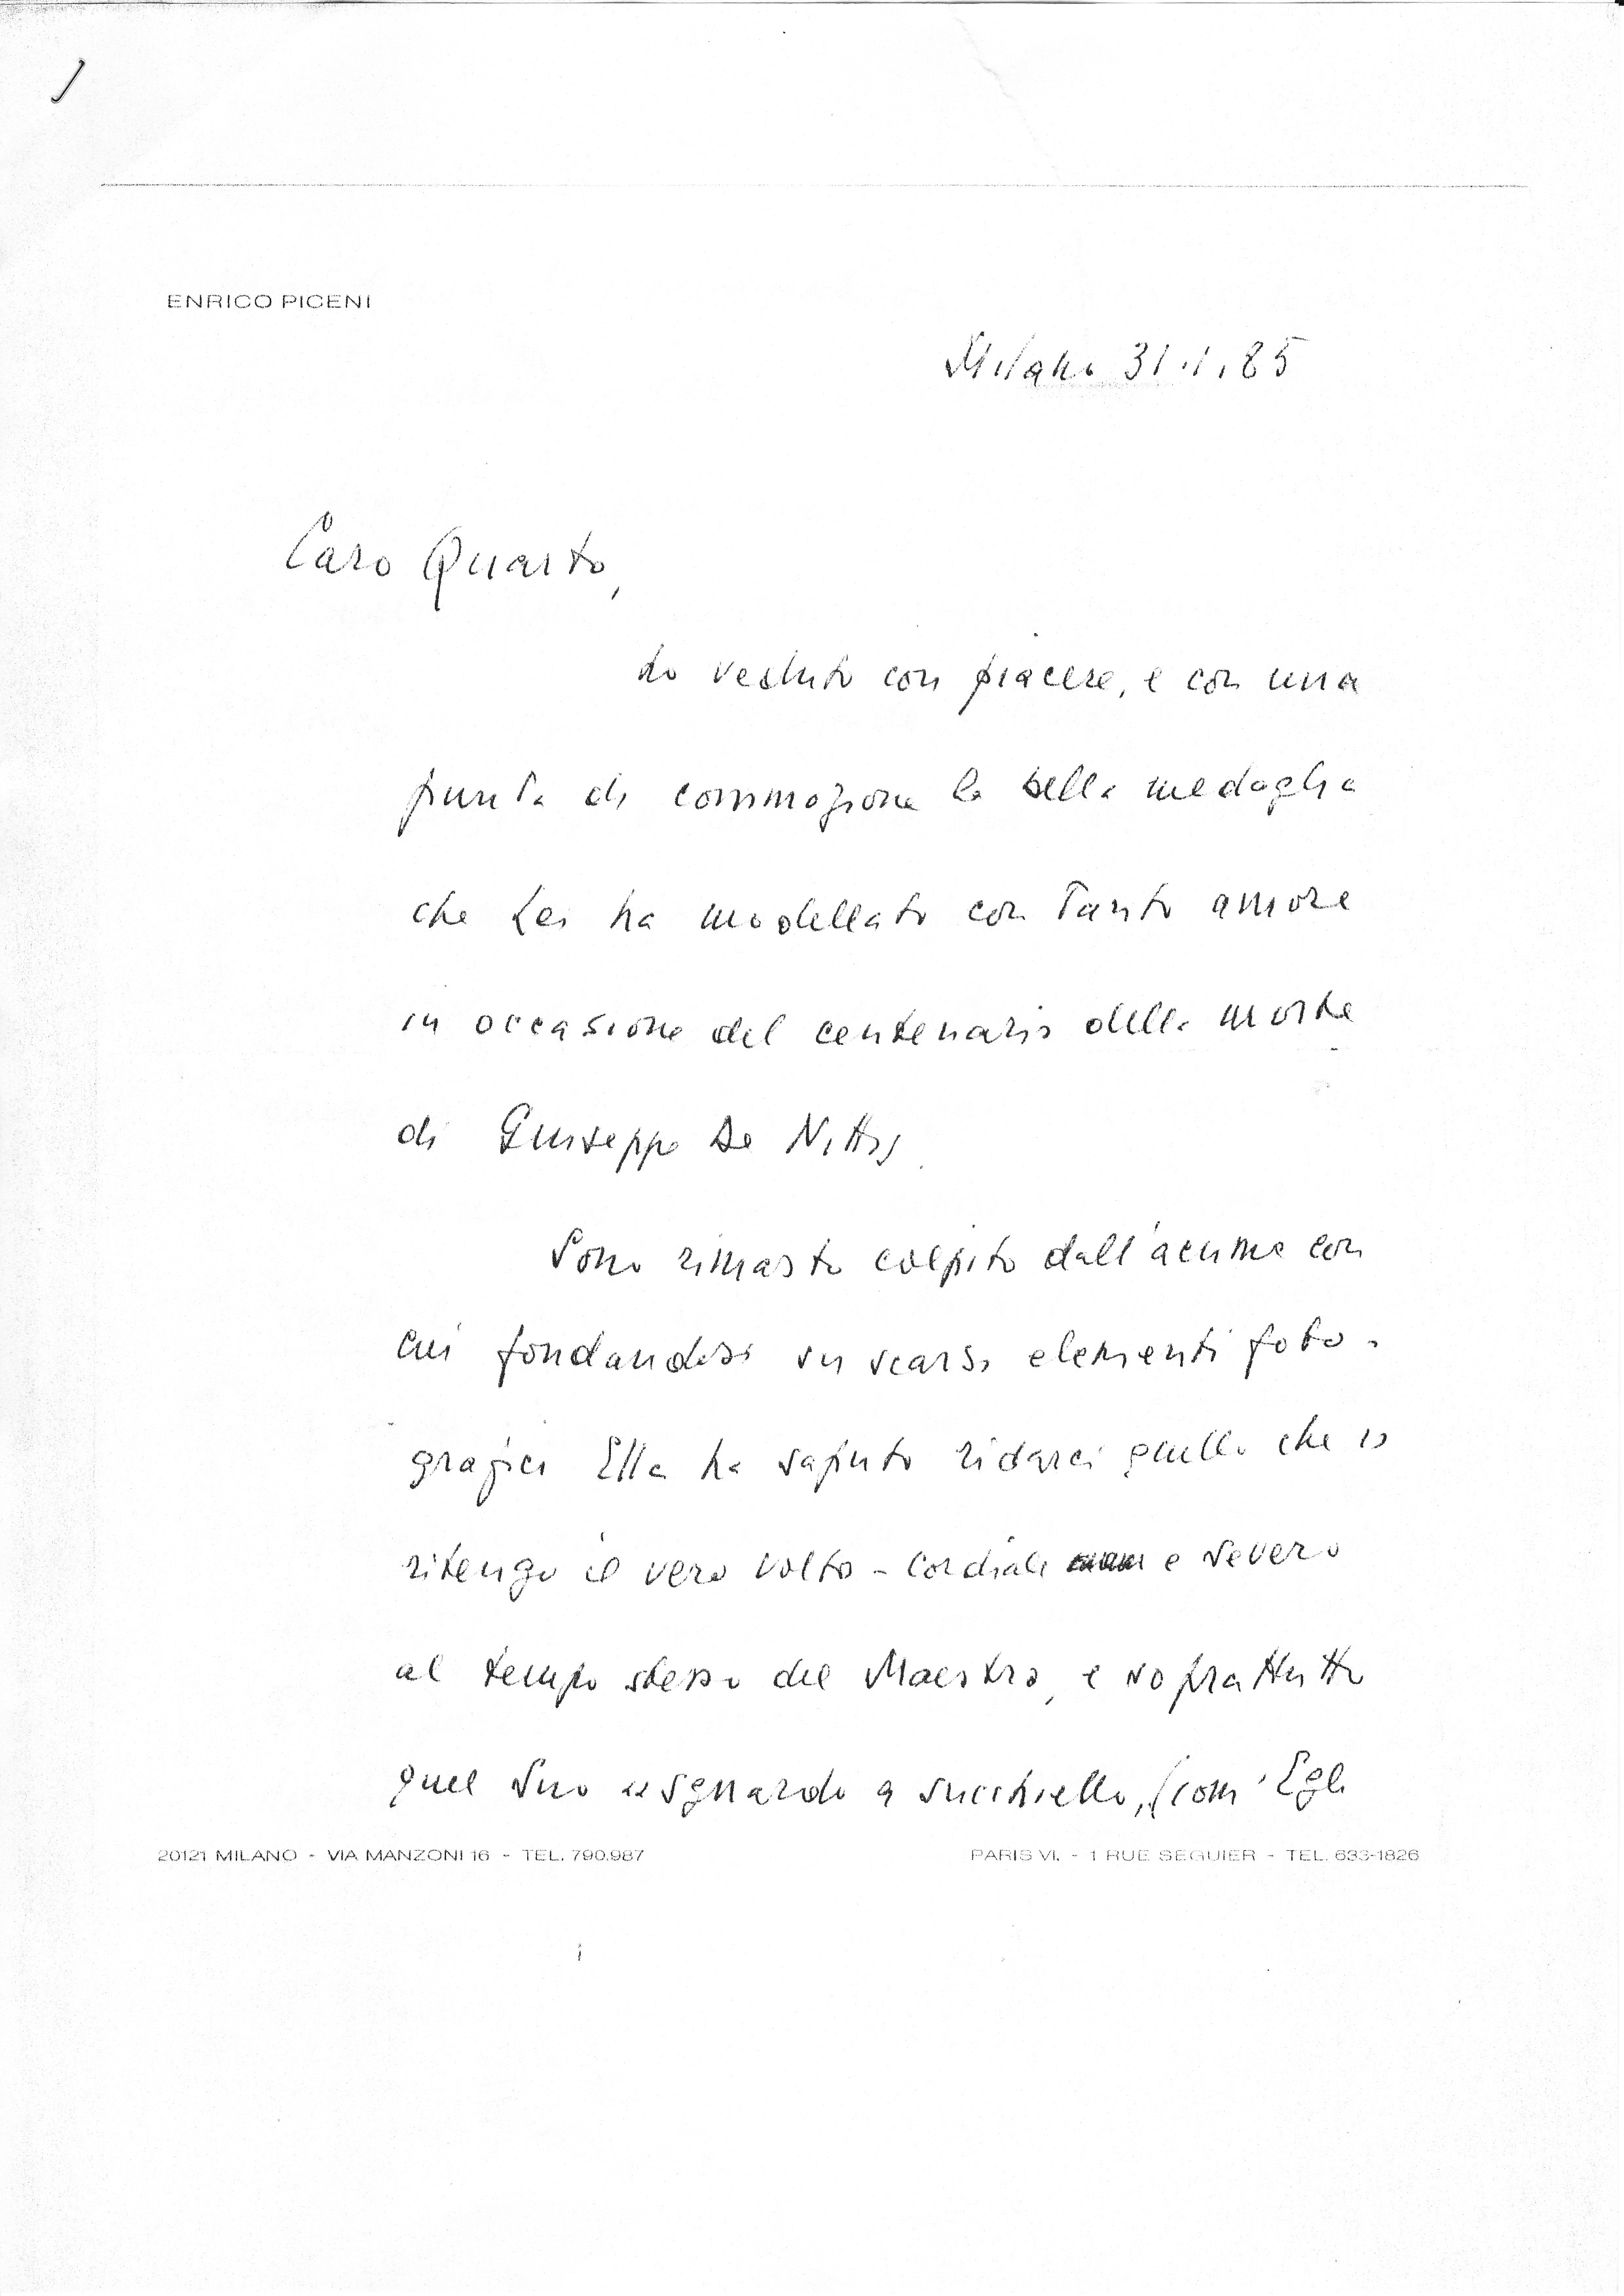 ENRICO PICENI
Milano 31.1.85
Caro Quarto,
ho veduto con piacere, e con una
punta di commozione la bella medaglia
che Lei ha modellato con tanto amore
in occasione del centenario della morte
di Giuseppe De Nittis.
Sono rimasto colpito dall'acume con
cui fondandosi su scarsi elementi foto-
grafici Ella ha saputo ridarci quello che io
ritengo il vero volto - cordiale e severo
al tempo stesso del Maestro, e soprattutto
quel suo "sguardo a succhiello, (com'Egli
20121 MILANO - VIA MANZONI 16 - TEL. 790.987
PARIS VI. - 1 RUE SEGUIER - TEL. 633-1826